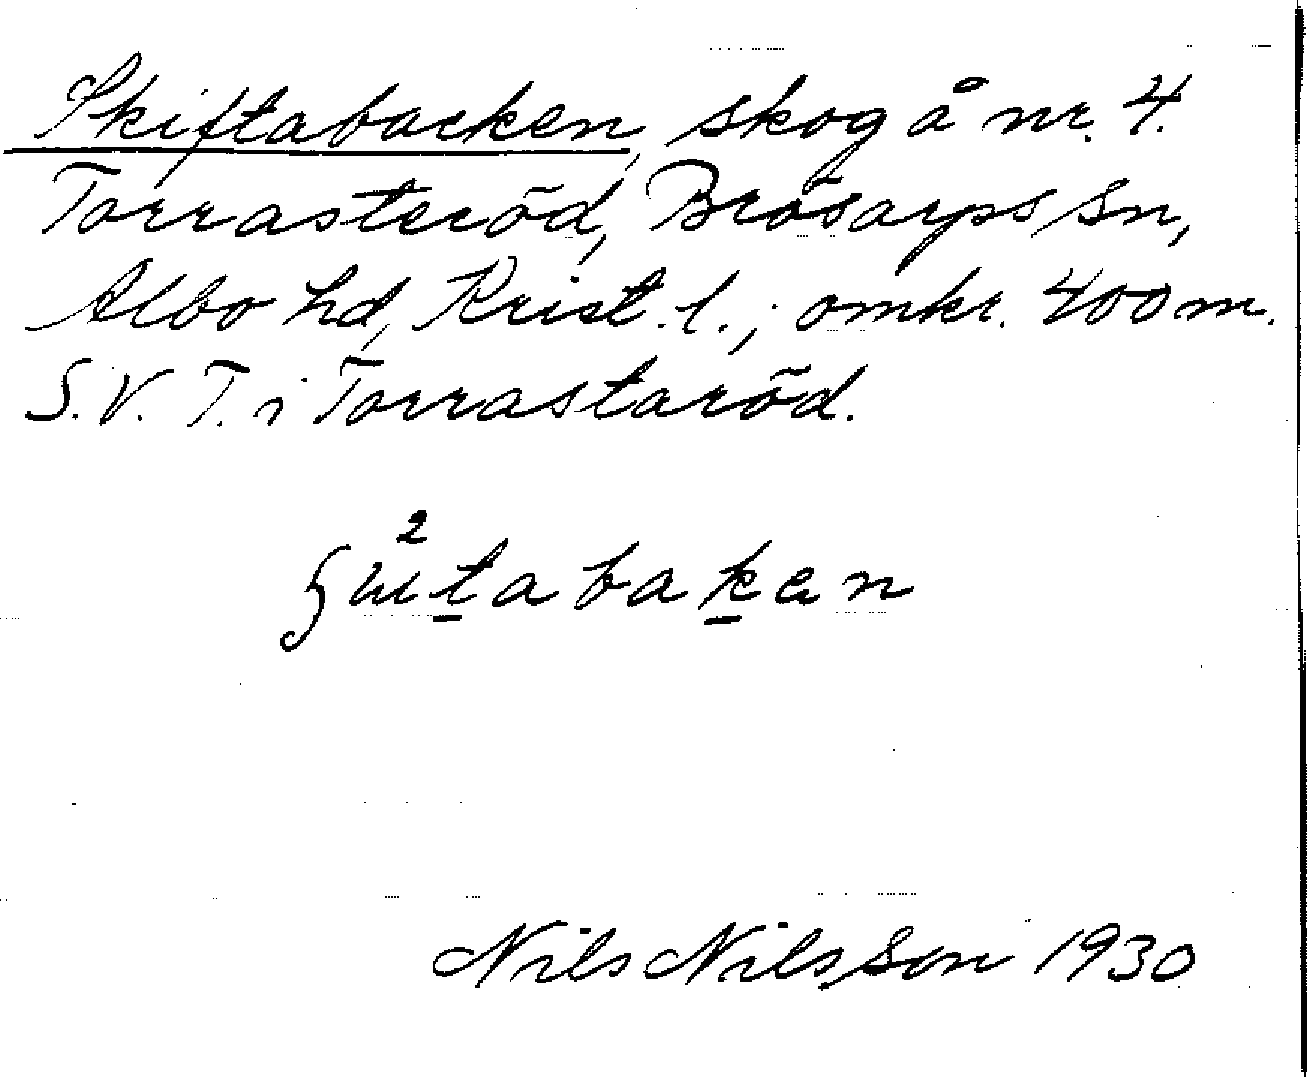 Skiftabacken, skog å nr. 4.
Torrasteröd, Brösarps sn,
Albo hd, Krist. l.; omkr. 400 m.
S.V. T. i Torrastaröd.
Nils Nilsson 1930